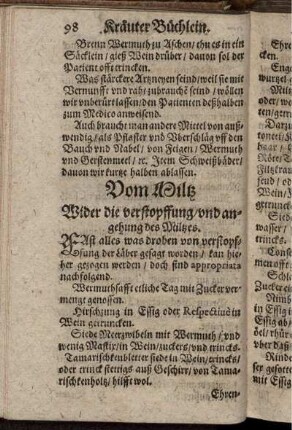 98 Kräuter Büchlein.
Brenn Wermuth zu Aschen / thu es in ein
Säcklein / gieß Wein drüber / davon sol der
Patient offt trincken.
Was stärckere Artzneyen seind / weil sie mit
Vernunfft vnd raht zubrauchē seind / wöllen
wir vnberürt lassen / den Patienten deßhalben
zum Medico anweisend.
Auch braucht man andere Mittel von auß-
wendig / als Pflaster vnd Vberschläg vff den
Bauch vnd Nabel / von Feigen / Wermuth
vnd Gerstenmeel / ꝛc. Item Schweißbäder /
davon wir kurtze halben ablassen.
Vom Miltz
Wider die verstopffung / vnd an-
gehung des Miltzes.
FAst alles was droben von verstopf-
fung der Läber gesagt worden / kan hie-
her gezogen werden / doch sind appropriata
nachfolgend.
Wermuthsafft etliche Tag mit Zucker ver-
mengt genossen.
Hirschzung in Essig oder
Wein getruncken.
Siede Meerzwibeln mit Wermuth / vnd
wenig Mastix / in Wein / zuckers / vnd trincks.
Tamarischkenbletter siede in Wein / trincks /
oder trinck stettigs auß Geschirr / von Tama-
rischkenholtz / hilfft wol.
Ehren-